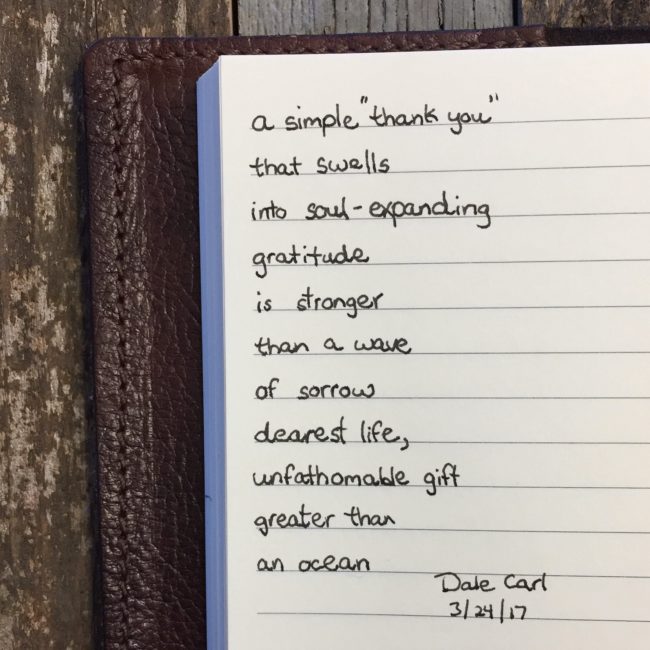 a simple "thank you"
that swells
into soul-expanding
gratitude
is stronger
than a wave
of sorrow
dearest life,
unfathomable gift
greater than
an ocean
Dale Carl
3/24/17